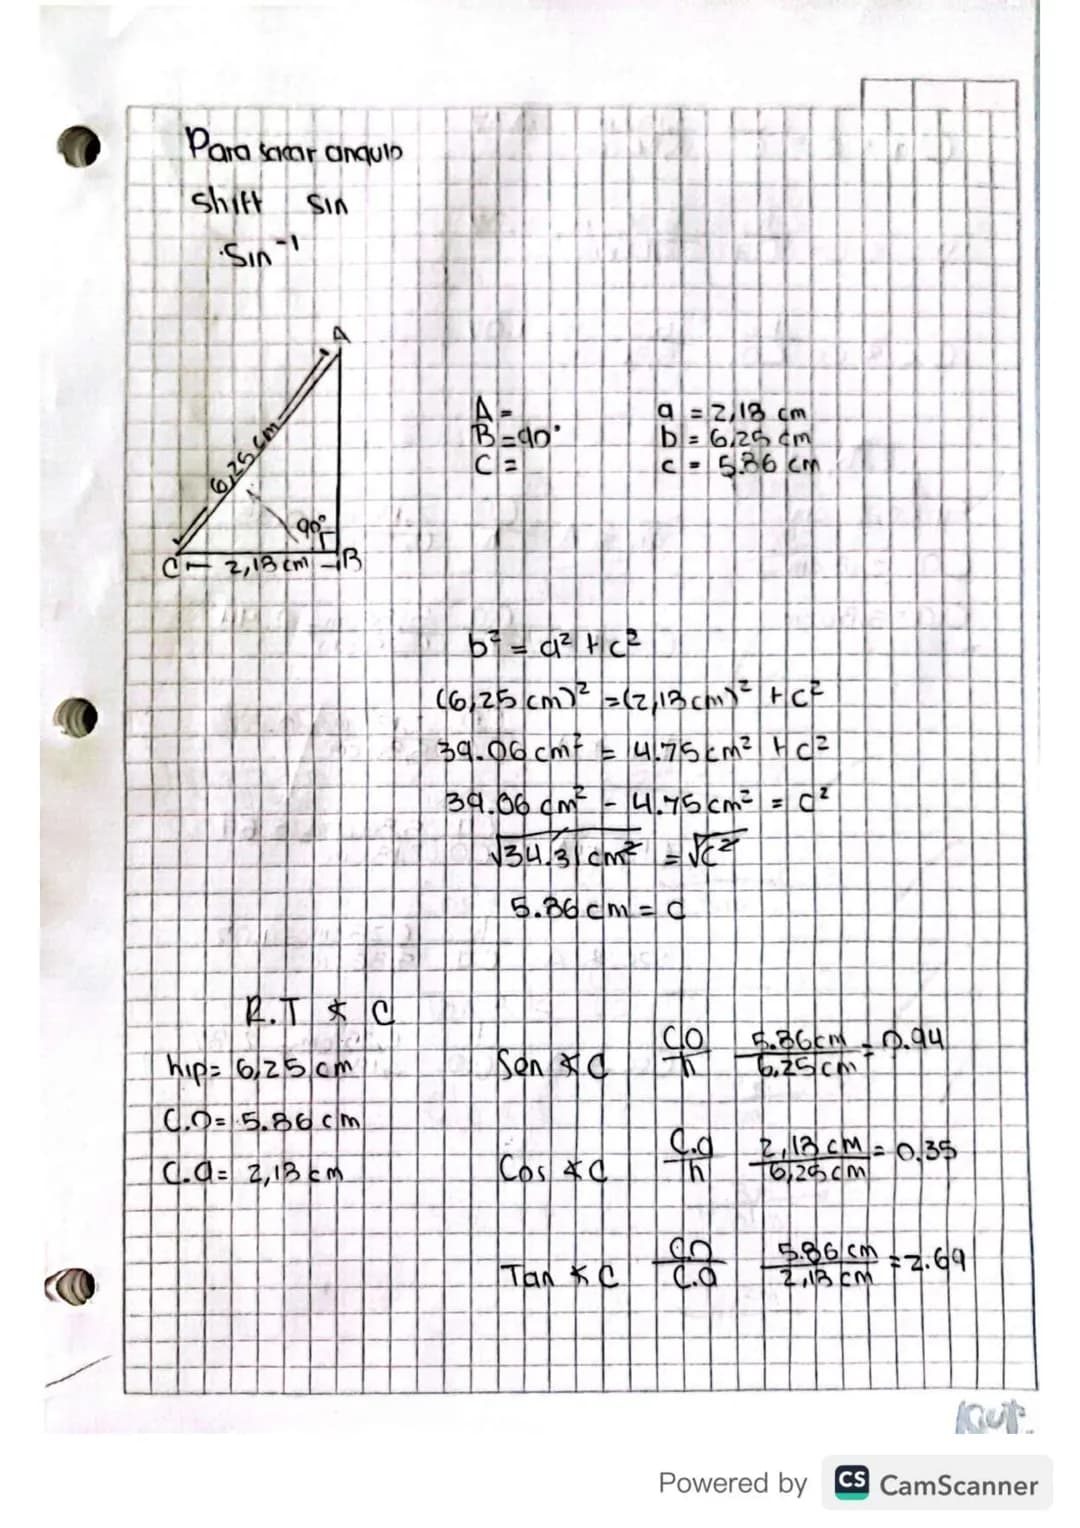 Para sacar angulo
Shift Sin
Sin⁻¹
A
6,25 cm
90°
C 2,18 cm B
A =
B = 90°
C =
a = 2,18 cm
b = 6,25 cm
c = 5.86 cm
b² = a² + c²
(6,25 cm)² = (2,18 cm)² + c²
39.06 cm² = 4.75 cm² + c²
39.06 cm² - 4.75 cm² = c²
√34.31 cm² = √c²
5.86 cm = c
R.T ∡ C
hip = 6,25 cm
C.O = 5.86 cm
C.a = 2,18 cm
Sen ∡ C C.O/h 5.86 cm/6,25 cm = 0.94
Cos ∡ C C.a/h 2,18 cm/6,25 cm = 0,35
Tan ∡ C C.O/C.a 5.86 cm/2,18 cm = 2.69
Powered by CS CamScanner